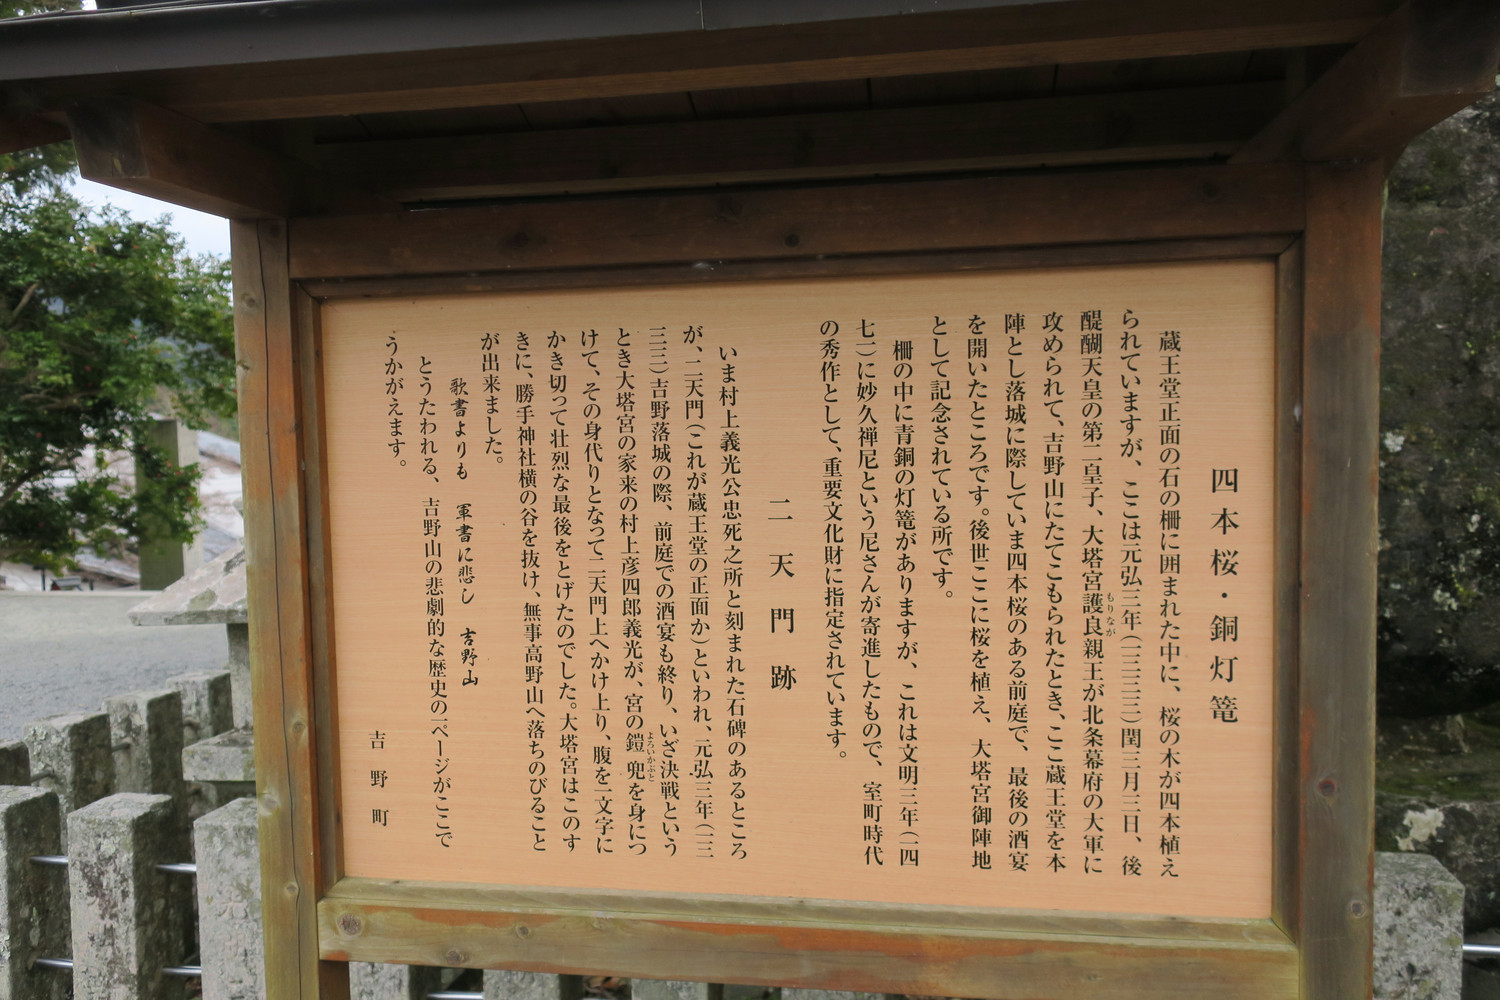 四本桜・銅灯篭
蔵王堂正面の石の柵に囲まれた中に、桜の木が四本植え
られていますが、ここは元弘三年(一三三三)閏三月三日、後
醍醐天皇の第二皇子、大塔宮護良親王が北条幕府の大軍に
もりなが
攻められて、吉野山にたてこもられたとき、ここ蔵王堂を本
陣とし落城に際していま四本桜のある前庭で、最後の酒宴
を開いたところです。後世ここに桜を植え、大塔宮御陣地
として記念されている所です。
柵の中に青銅の灯篭がありますが、これは文明三年(一四
七一)に妙久禅尼という尼さんが寄進したもので、室町時代
の秀作として、重要文化財に指定されています。
二天門跡
いま村上義光公忠死之所と刻まれた石碑のあるところ
が、二天門(これが蔵王堂の正面か)といわれ、元弘三年(一三
三三)吉野落城の際、前庭での酒宴も終り、いざ決戦という
とき大塔宮の家来の村上彦四郎義光が、宮の鎧兜を身につ
よろいかぶと
けて、その身代りとなって二天門上へかけ上り、腹を一文字に
かき切って壮烈な最後をとげたのでした。大塔宮はこのす
きに、勝手神社横の谷を抜け、無事高野山へ落ちのびること
が出来ました。
歌書よりも 軍書に悲し 吉野山
とうたわれる、吉野山の悲劇的な歴史の一ページがここで
うかがえます。
吉野町